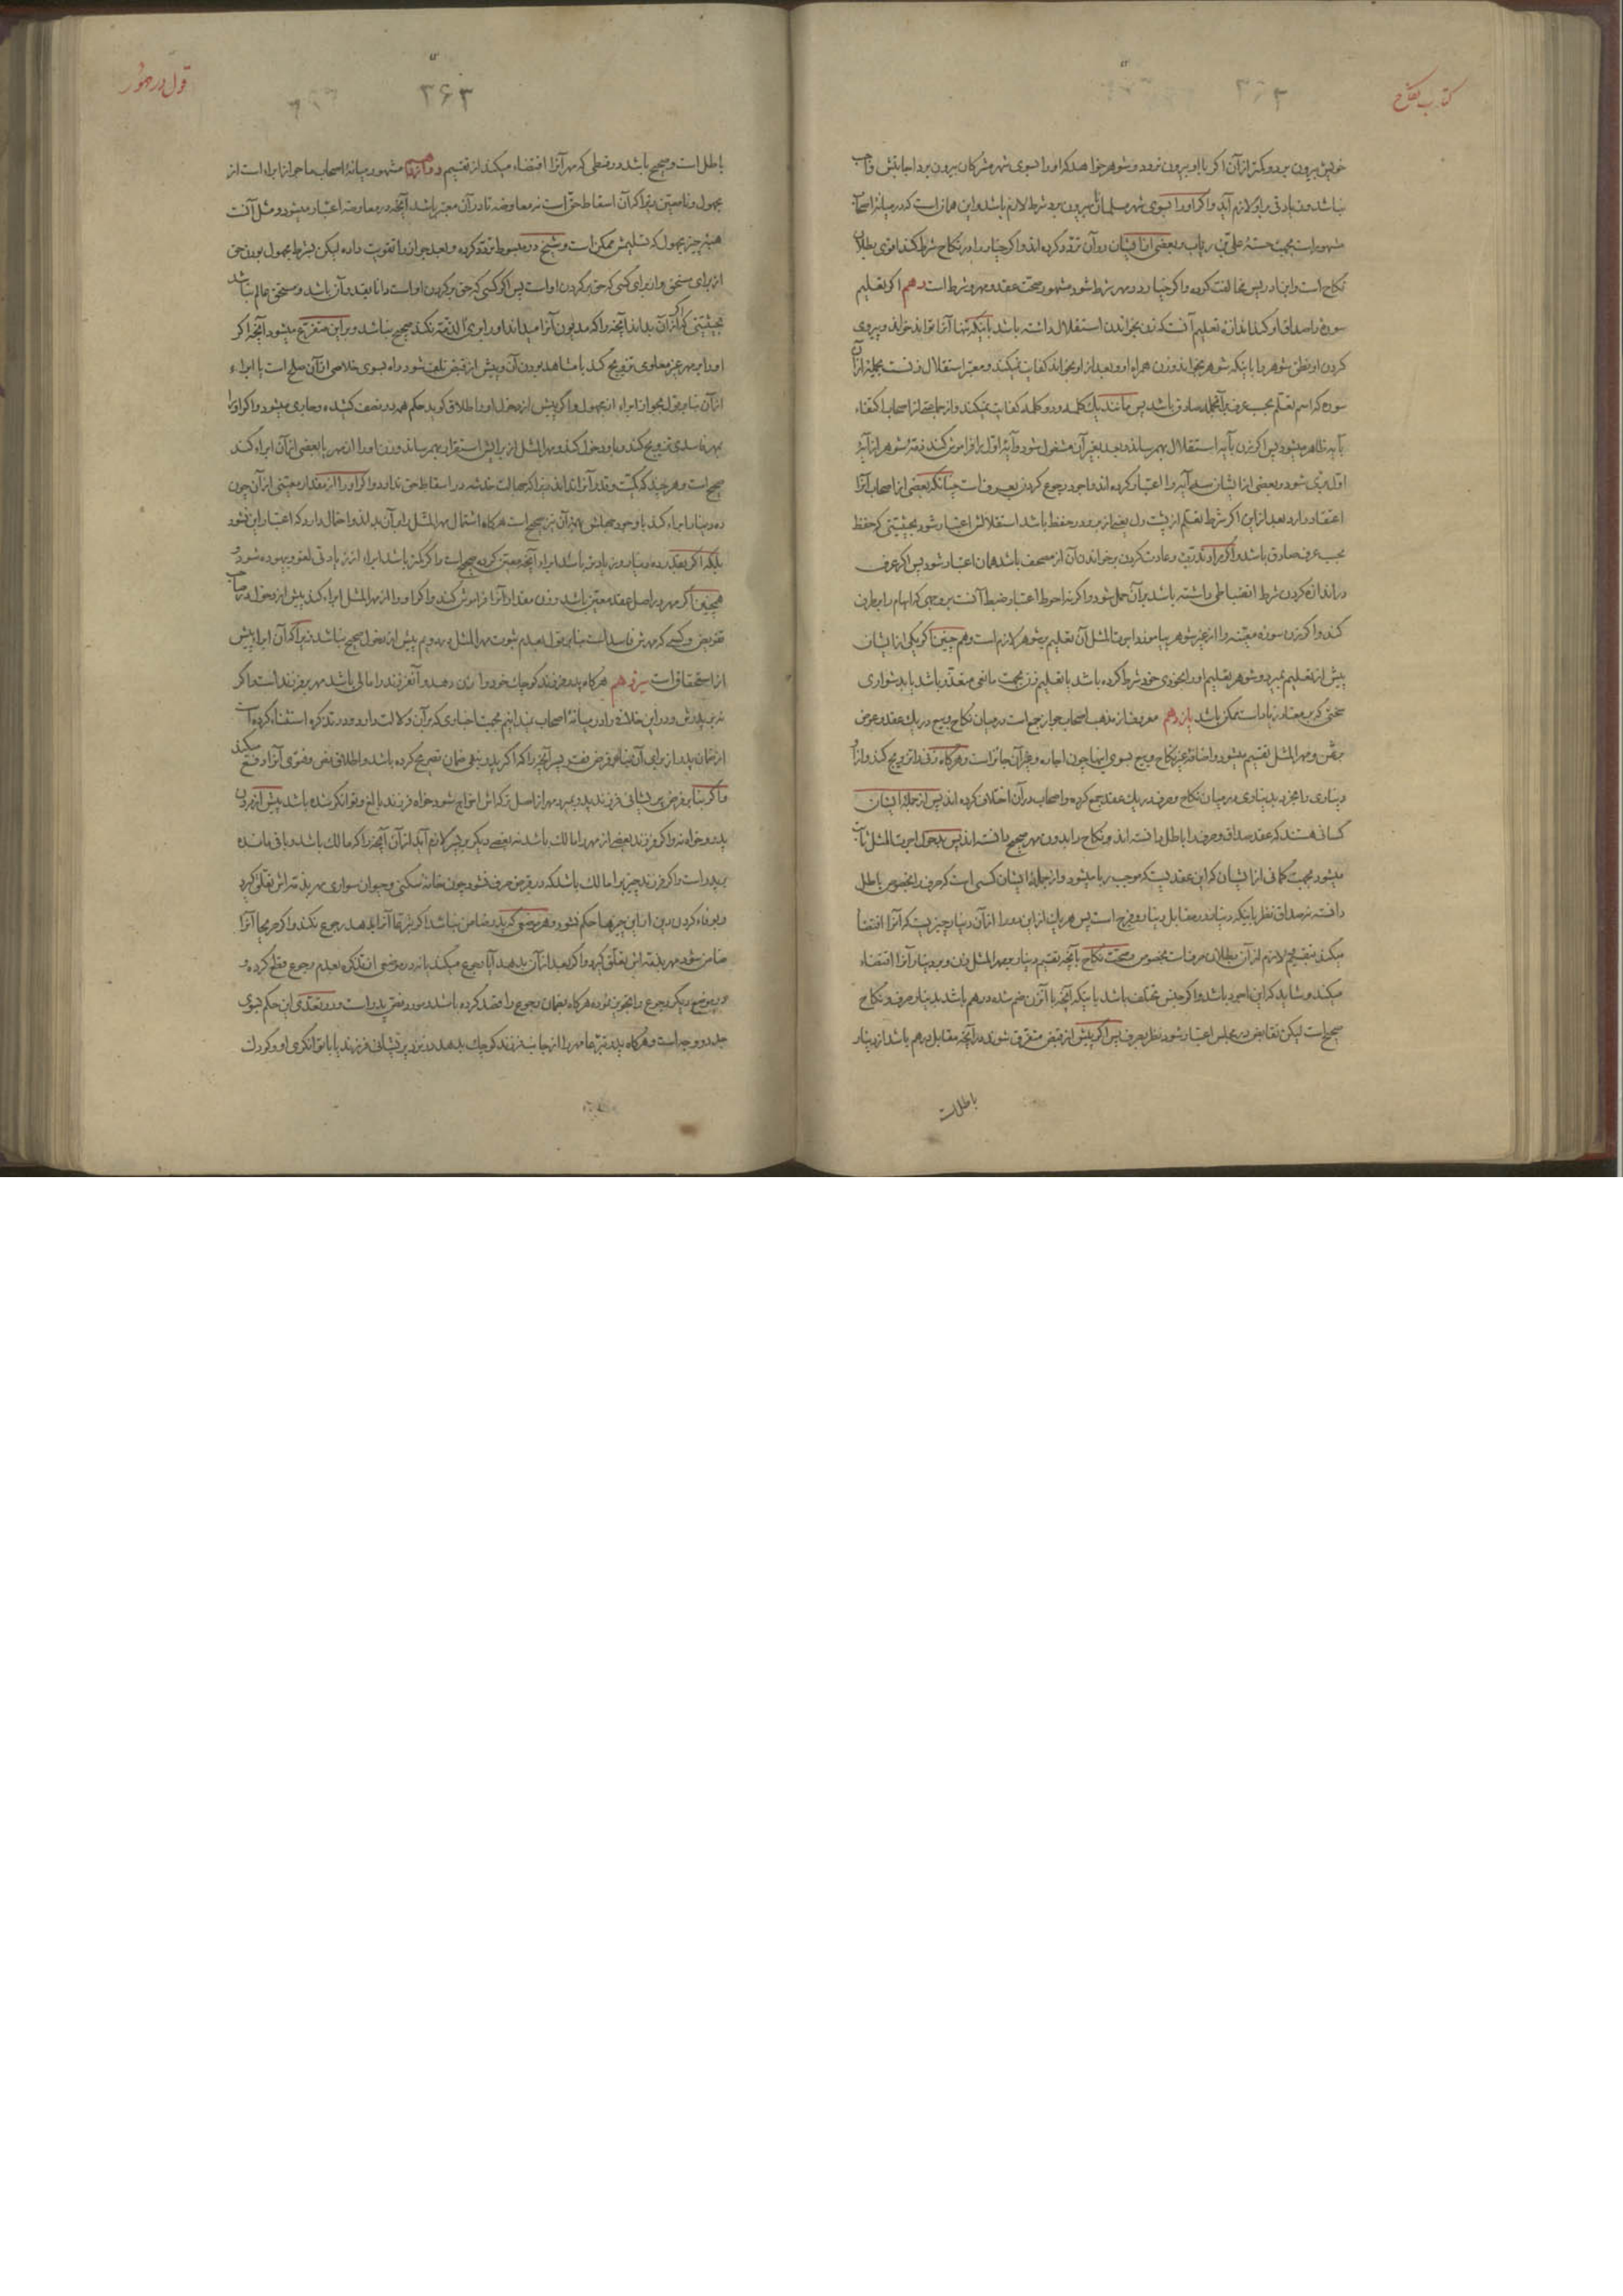 کتاب نکاح
۳۶۳
خویش بیرون برد و کمتر از آن اگر با او بیرون نرود و شوهر خواهد که او را بسوی شهر مشرکان بیرون برد اجابتش واجب
نباشد و زیادتی بر او لازم آید و اگر او را بسوی شهر مسلمانان بیرون برد شرط لازم باشد و این همان است که در میانهٔ اصحاب
مشهور است بجهت حسنهٔ علی بن رباب و بعضی از ایشان در آن تردد کرده‌اند و اگر خیار را در نکاح شرط کند اقوی بطلان
نکاح است و ابن ادریس مخالفت کرده و اگر خیار در مهر شرط شود مشهور صحت عقد و مهر و شرط است دهم اگر تعلیم
سوره را صداق او کند اندازه تعلیم آنست که زن بخواندن استقلال داشته باشد باینکه تنها آنرا تواند خواند و پیروی
کردن او نطق شوهر را باینکه شوهر بخواند و زن همراه او و بعد از او بخواند کفایت نمیکند و معتبر استقلال زنست بجمله از آن
سوره که اسم تعلم بحسب عرف بر آنجمله صادق باشد پس مانند یک کلمه و دو کلمه کفایت نمیکند و از جماعتی از اصحاب اکتفاء
بآیه ظاهر میشود پس اگر زن بآیه استقلال بهم رساند و بعد بغیر آن مشغول شود و آیهٔ اول را فراموش کند ذمهٔ شوهر از آیهٔ
اول بری شود و بعضی از ایشان سه آیه را اعتبار کرده‌اند و اجود رجوع کردن بعرف است چنانکه بعضی از اصحاب آنرا
اعتقاد دارد بعد از این اگر شرط تعلم از پشت دل یعنی از بر و در حفظ باشد استقلالش اعتبار شود بحیثیتی که حفظ
بحسب عرف صادق باشد و اگر مراد تدرب و عادت کردن بر خواندن آن از مصحف باشد همان اعتبار شود پس اگر عرف
در اندازه کردن شرط انضباطی داشته باشد بر آن حمل شود و اگر نه احوط اعتبار ضبط آنست بر وجهی که ابهام را برطرف
کند و اگر زن سوره معینه را از غیر شوهر بیاموزد اجرت المثل آن تعلیم بر شوهر لازم است و هم چنین اگر یکی از ایشان
پیش از تعلیم بمیرد و شوهر تعلیم او را بخودی خود شرط کرده باشد یا تعلیم زن بجهت مانعی متعذر باشد یا بدشواری
سختی که بر معتاد زیاد است ممکن باشد یازدهم معروف از مذهب اصحاب جواز جمع است در میان نکاح و بیع در یک عقد و عوض
بر ثمن و مهر المثل تقسیم میشود و اضافهٔ غیر نکاح و بیع بسوی اینها چون اجاره و غیر آن جائز است و هرگاه زنی را تزویج کند و از او
دیناری را بخرد بدیناری در میان نکاح و صرف در یک عقد جمع کرده و اصحاب در آن اختلاف کرده‌اند پس از جملهٔ ایشان
کسانی هستند که عقد صداق و صرف را باطل دانسته‌اند و نکاح را بدون مهر صحیح دانسته‌اند پس بدخول اجرت المثل ثابت
میشود بجهت گمانی از ایشان که این عقدیست که موجب ربا میشود و از جملهٔ ایشان کسی است که صرف را بخصوص باطل
دانسته نه صداق نظر باینکه دینار در مقابل دینار و بضع است پس هر یک از این دو را از آن دینار چیزیست که آنرا اقتضا
میکند تقسیم و لازم از آن بطلان صرفست بخصوص و صحت نکاح بآنچه تقسیم دینار بر مهر المثل زن و بر دینار آنرا اقتضاء
میکند و شاید که این اجود باشد و اگر جنس مختلف باشد باینکه آنچه با آن زن ضم شده درهم باشد بدینار صرف و نکاح
صحیح است لیکن تقابض در مجلس اعتبار شود نظر بصرف پس اگر پیش از قبض متفرق شوند در آنچه مقابل درهم باشد از دینار
باطل است
قول در مهور
۳۶۳
باطل است و صحیح باشد در قسطی که مهر آنرا اقتضاء میکند از تقسیم دوازدهم مشهور میانهٔ اصحاب ما جواز ابراء است از
مجهول و نامعین زیرا که آن اسقاط حق است نه معاوضه تا در آن معتبر باشد آنچه در معاوضه اعتبار میشود و مثل آنست
هبهٔ چیز مجهول که تسلیمش ممکن است و شیخ در مبسوط تردد کرده و بعد جواز را تقویت داده لیکن بشرط مجهول بودن حق
از برای مستحق و از برای کسی که حق بر گردن او است پس اگر کسی که حق بر گردن او است دانا بقدر آن باشد و مستحق عالم نباشد
بحیثیتی که اگر آن بداند آنچه را که مدیون آنرا میداند او را بری الذمه نکند صحیح نباشد و بر این متفرع میشود آنچه اگر
او را بر مهر غیر معلومی تزویج کند با مشاهد بودن آن و پیش از قبض تلف شود راه بسوی خلاصی از آن صلح است یا ابراء
از آن بنابر قول بجواز ابراء از مجهول و اگر پیش از دخول او را طلاق گوید حکم همه در نصف کشیده و جاری میشود و اگر او را
بمهر فاسدی تزویج کند و باو دخول کند و مهر المثل از برایش استقرار بهم رساند و زن او را از مهر یا بعضی از آن ابراء کند
صحیح است و هر چند کمیت و قدر آنرا نداند زیرا که جهالت خدشه در اسقاط حق ندارد و اگر او را از مقدار معینی از آن چون
ده دینار ابراء کند با وجود جهلش بغیر آن نیز صحیح است هرگاه اشتمال مهر المثل را بر آن بداند و احتمال دارد که اعتبار این نشود
بلکه اگر بقدر ده دینار و زیادتی باشد ابراء آنچه معین کرده صحیح است و اگر کمتر باشد ابراء از زیادتی لغو و بیهوده شود و
همچنین اگر مهر در اصل عقد معین باشد و زن مقدار آنرا فراموش کند و اگر او را از مهر المثل ابراء کند پیش از دخول در صاحب
تفویض و کسی که مهرش فاسد است بنابر قول بعدم ثبوت مهر المثل در دویم پیش از دخول صحیح نباشد زیرا که آن ابراء پیش
از استحقاق است سیزدهم هرگاه پدر فرزند کوچک خود را زن دهد و آنفرزند را مالی باشد مهر بر فرزند است و اگر نه
بر پدرش و در این خلافی را در میانهٔ اصحاب نمیدانیم بجهت اخباری که بر آن دلالت دارد و در تذکره استثناء کرده است
از ضمان پدر از برای آن بنابر فرض فقر پسر آنچه را که اگر پدر بنفی ضمان تصریح کرده باشد و اطلاق نص و فتوی آنرا دفع میکند
و اگر بنا بر فرض پریشانی فرزند پدر بمیرد مهر از اصل ترکه‌اش اخراج شود خواه فرزند بالغ و توانگر شده باشد پیش از مردن
پدر و خواه نه و اگر فرزند بعضی از مهر را مالک باشد نه بعضی دیگر بر پسر لازم آید از آن آنچه را که مالک باشد و باقی مانده
بر پدر است و اگر فرزند چیزی را مالک باشد که در قرض صرف نشود چون خانهٔ سکنی و حیوان سواری مهر بذمه‌اش تعلق گیرد
و بوفاء کردن دین از این چیزها حکم نشود و هر موضعی که پدر ضامن نباشد اگر تبرعاً آنرا بدهد رجوع نکند و اگر صریحاً آنرا
ضامن شود مهر بذمه‌اش تعلق گیرد و اگر بعد از آن بدهد آیا رجوع میکند یا نه در موضعی از تذکره بعدم رجوع قطع کرده و
در موضع دیگر رجوع را تجویز نموده هرگاه بضمان رجوع را قصد کرده باشد و مورد نص پدر است و در تعدی این حکم بسوی
جد دو وجه است و هرگاه پدر تبرعا مهر را از جانب فرزند کوچک بدهد در نزد پریشانی فرزند یا با توانگری او و کودک